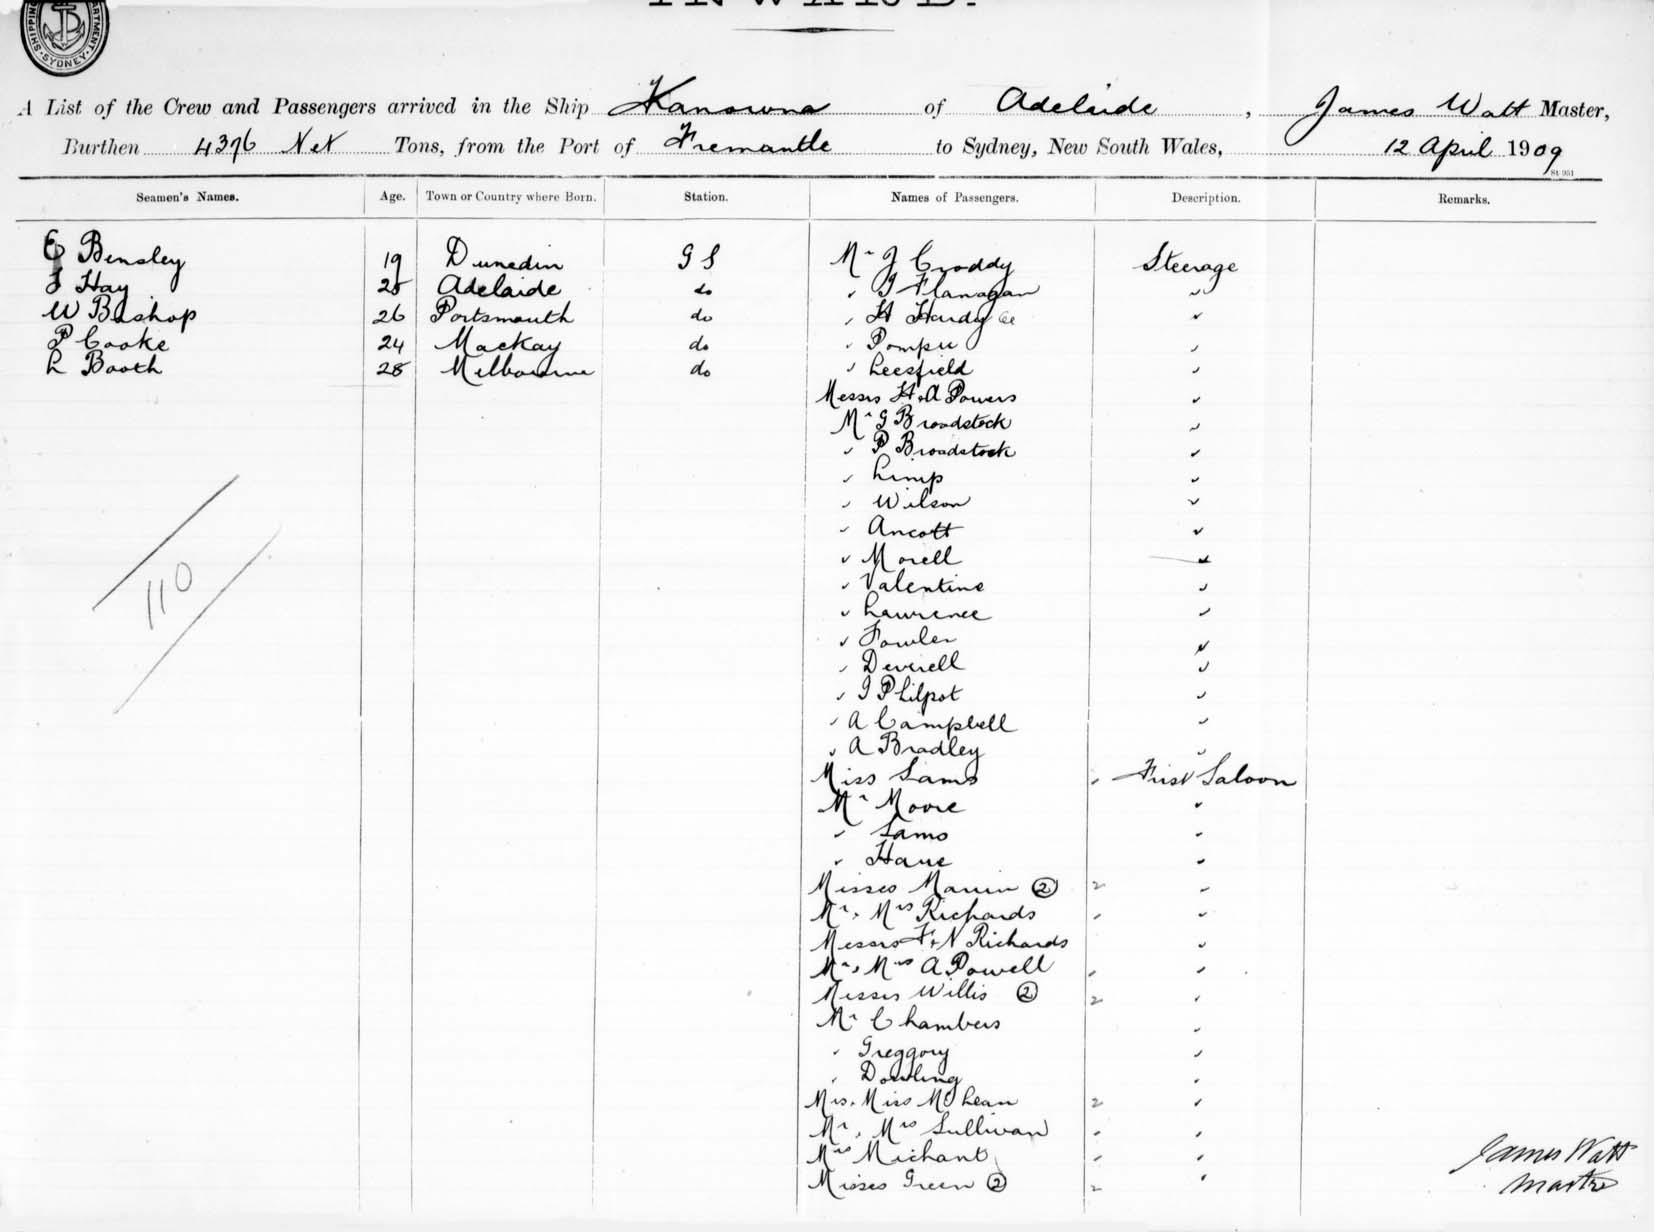 INWARD.
SHIPPING DEPARTMENT SYDNEY
A List of the Crew and Passengers arrived in the Ship Kanowna of Adelaide, James Watt Master,
Burthen 4376 Net Tons, from the Port of Fremantle to Sydney, New South Wales, 12 April 1909
St 951
Seamen's Names. Age. Town or Country where Born. Station. Names of Passengers. Description. Remarks.
E Bensley 19 Dunedin G S Mr J Croddy Steerage
Hay 25 Adelaide do " Flanagan "
W Bishop 26 Portsmouth do " H Hardy "
P Cooke 24 Mackay do " "
L Booth 28 Melbourne do " Leesfield "
Messrs H & A Powers "
Mr G Broadstock "
" P Broadstock "
" Limp "
" Wilson "
" Ancott "
" Morell "
" Valentine "
" Lawrence "
" Fowler "
" Deverell "
" J Philpot "
" A Campbell "
" A Bradley "
110
Miss Sams " First Saloon
Mr Moore "
" Sams "
" "
Misses 2 2 "
Mr, Mrs Richards " "
Messrs F & N Richards "
Mr, Mrs A Powell " "
Misses Willis 2 2 "
Mr Chambers "
" Greggory "
" Dowling "
Mrs, Miss McLean 2 "
Mr, Mrs Sullivan " "
Mrs Michant " "
Misses Green 2 2 "
James Watt
Master